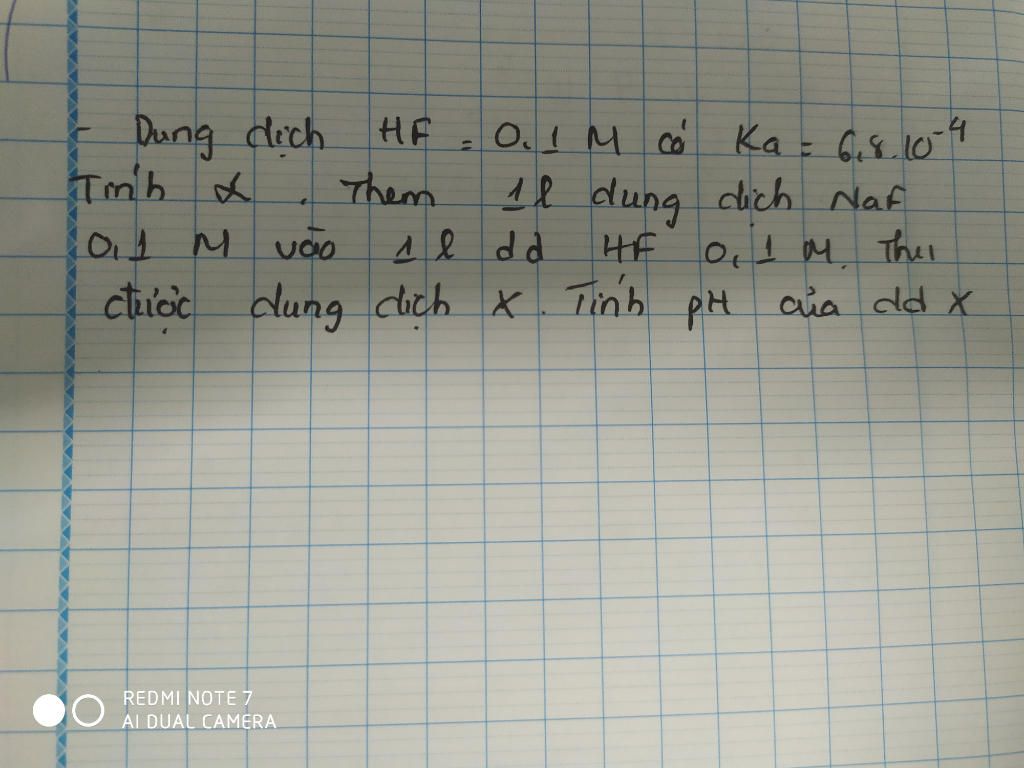 - Dung dịch HF = 0,1 M có Ka = 6,8.10⁻⁴
Tính α. Them 1l dung dịch NaF
0,1 M vào 1l dd HF 0,1 M. Thu
được dung dịch X. Tính pH của dd X
REDMI NOTE 7
AI DUAL CAMERA